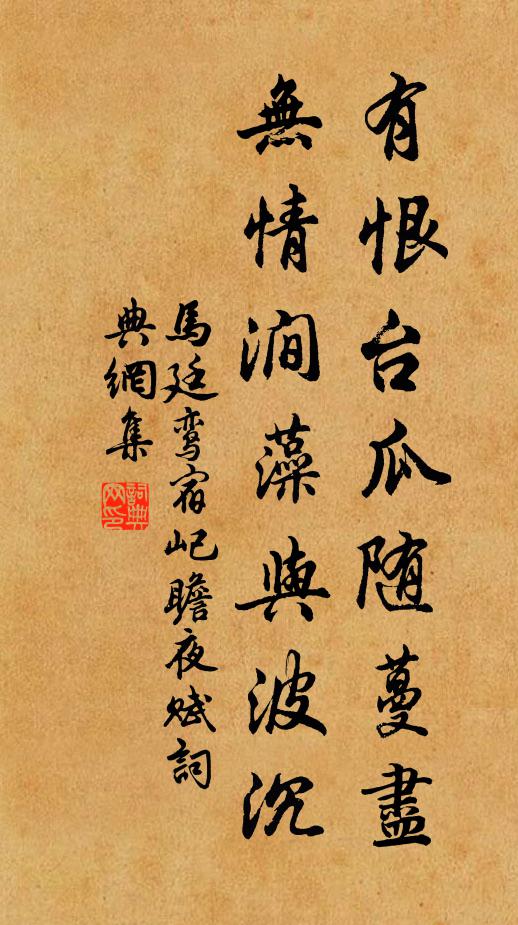 有恨台瓜随蔓盡
無情澗藻與波沉
馬廷鸾宿屺瞻夜赋詞
典網集
詞典
网印